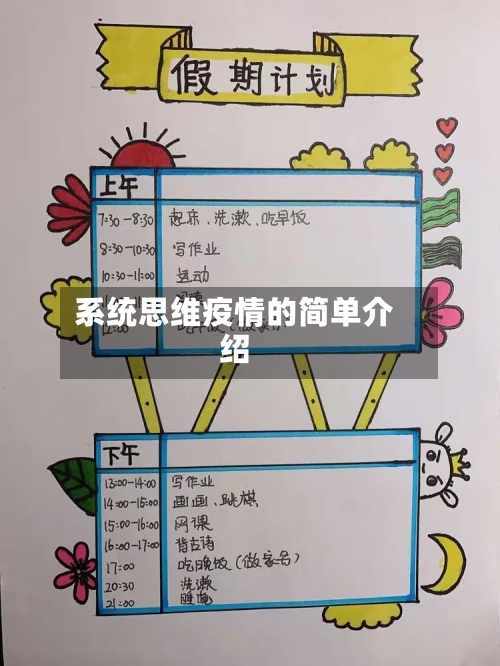 假期计划
上午
7:30-8:30 起床、洗漱、吃早饭
8:30-10:30 写作业
10:30-11:00 运动
系统思维疫情的简单介
绍
下午
13:00-14:00 写作业
14:00-15:00 画画、跳棋
15:00-16:00 网课
16:00-17:00 背古诗
17:00 吃晚饭(做家务)
20:30 洗漱
21:00 睡觉